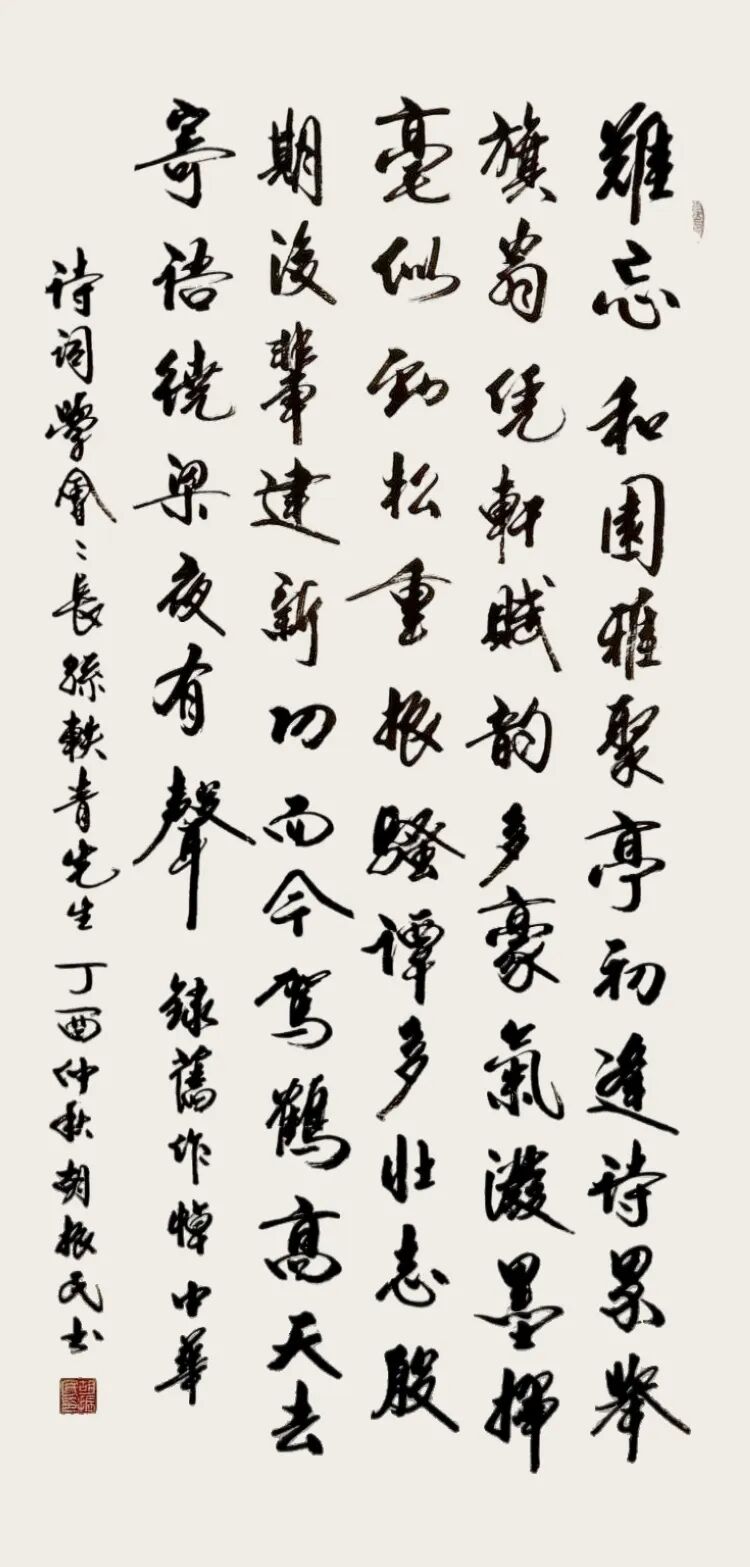 難忘和園雅聚亭初逢诗界舉
旗翁凭軒賦韵多豪氣潑墨揮
毫似勁松重振騷谭多壮志殷
期後輩建新功而今驾鶴高天去
寄语繞梁夜有聲 録舊作悼中華
诗词學會〻長孫軼青先生丁酉仲秋胡振民书